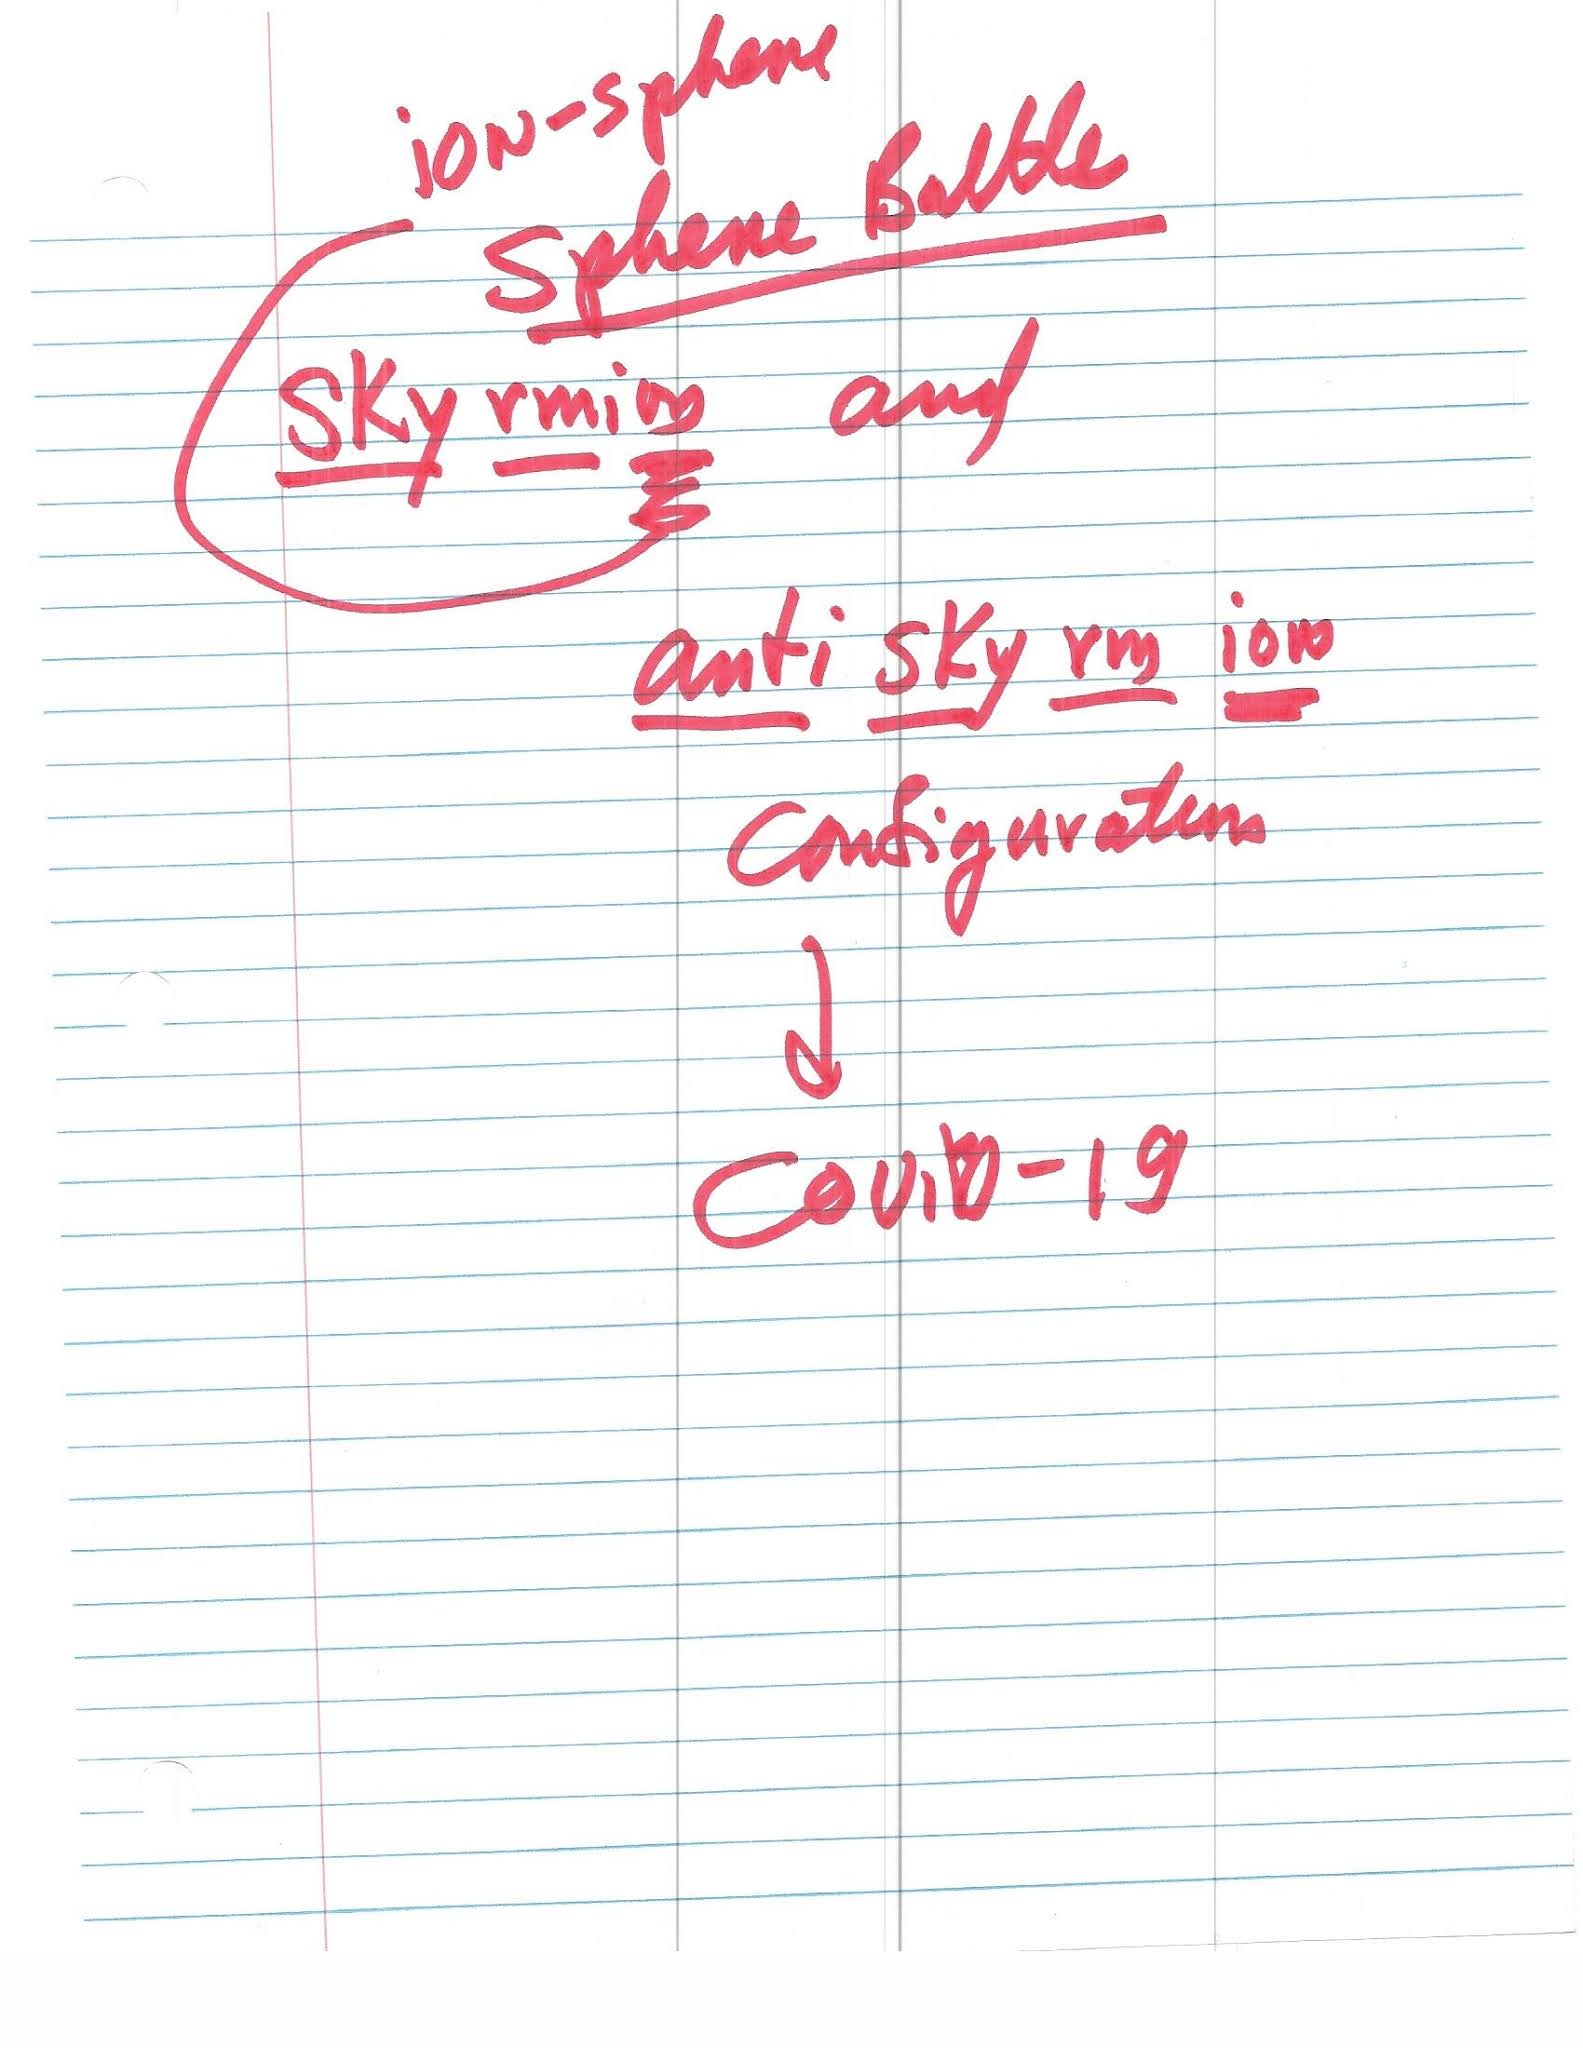 ion-sphere
Sphere Battle
SKy rmion and
anti SKy rm ion
Configuration
Covid-19